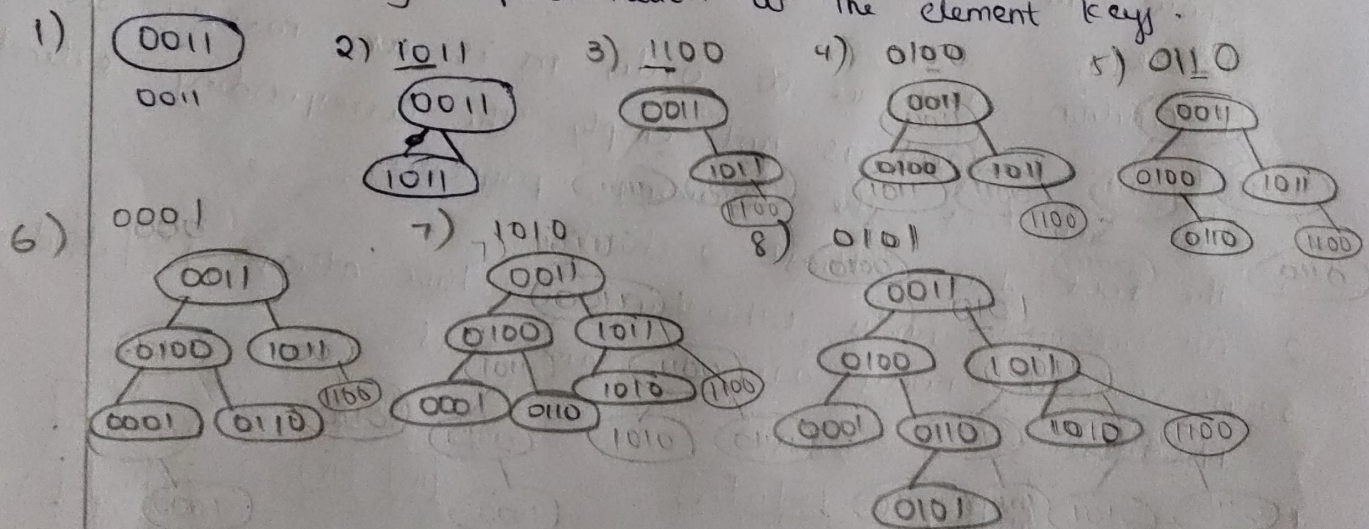 the element keys.
1) 0011
0011
2) 1011
0011
1011
3) 1100
0011
1011
1100
4) 0100
0011
0100 1011
1100
5) 0110
0011
0100 1011
0110 1100
6) 0001
0011
0100 1011
1100
0001 0110
7) 1010
0011
0100 1011
0001 0110 1010 1100
8) 0101
0011
0100 1011
0001 0110 1010 1100
0101